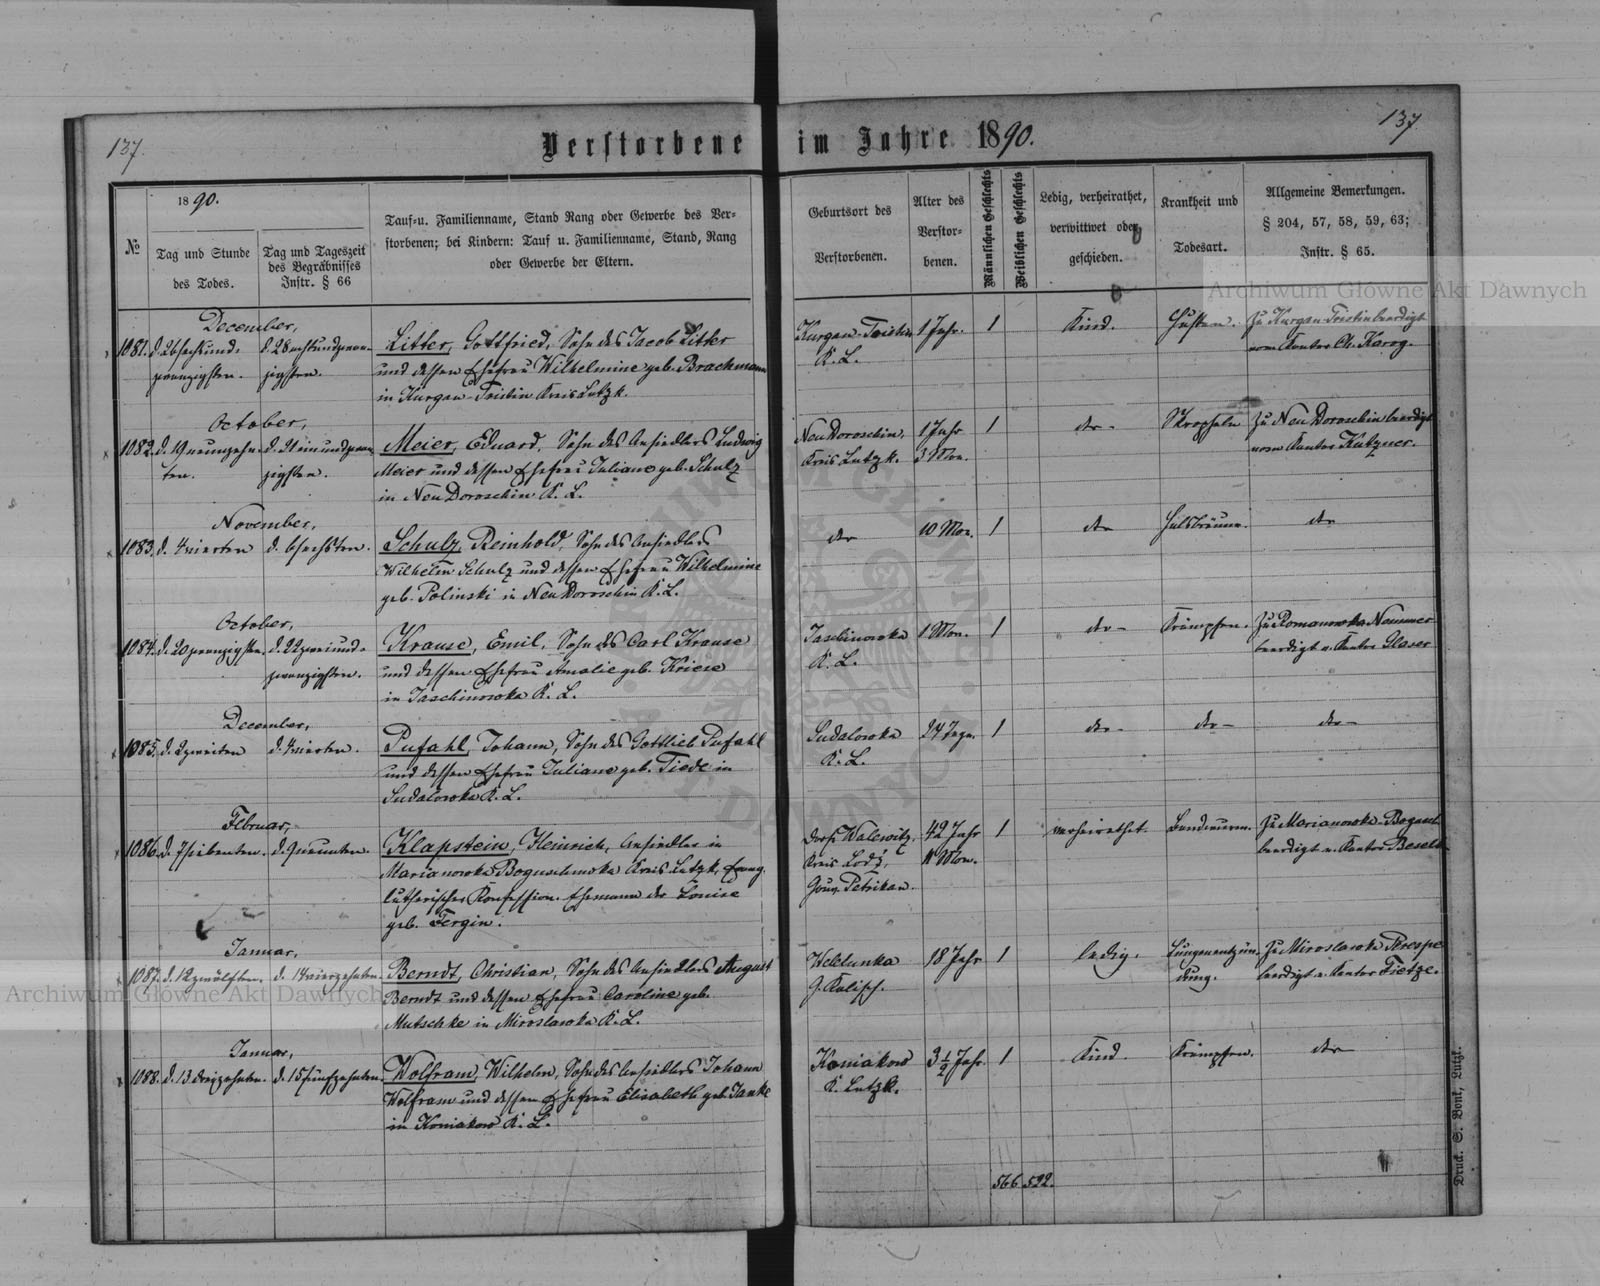 137.
Verstorbene im Jahre 1890.
137
1890.
№
Tag und Stunde
des Todes.
Tag und Tageszeit
des Begräbnisses
Instr. § 66
Tauf=u. Familienname, Stand Rang oder Gewerbe des Ver=
storbenen; bei Kindern: Tauf u. Familienname, Stand, Rang
oder Gewerbe der Eltern.
Geburtsort des
Verstorbenen.
Alter des
Verstor=
benen.
Männlichen Geschlechts
Weiblichen Geschlechts
Ledig, verheirathet,
verwittwet oder
geschieden.
Krankheit und
Todesart.
Allgemeine Bemerkungen.
§ 204, 57, 58, 59, 63;
Instr. § 65.
December,
1081. d. 26sechsund-
zwanzigsten.
d. 28achtundzwan-
zigsten.
Litter, Gottfried, Sohn des Jacob Litter
und dessen Ehefrau Wilhelmine geb. Brachmann
in Kurgan-Tristin Kreis Lutzk.
Kurgan-Tristin
K. L.
1 Jahr.
1
Kind.
Husten.
Zu Kurgan-Tristin beerdigt
vom Kantor Ch. Karog.
October,
1082. d. 19neunzehn-
ten.
d. 21einundzwan-
zigsten.
Meier, Eduard, Sohn des Ansiedlers Ludwig
Meier und dessen Ehefrau Juliane geb. Schulz
in Neu Doroschin K. L.
Neu Doroschin,
Kreis Lutzk.
1 Jahr
3 Mon.
1
dto-
Skropheln
Zu Neu Doroschin beerdigt
vom Kantor Kutzner.
November,
1083. d. 4vierten
d. 6sechsten.
Schulz, Reinhold, Sohn des Ansiedlers
Wilhelm Schulz und dessen Ehefrau Wilhelmine
geb. Polinski in Neu Doroschin K. L.
dto
10 Mon.
1
dto
Halsbräune.
dto
October,
1084. d. 20zwanzigsten.
d. 22zweiund-
zwanzigsten.
Krause, Emil, Sohn des Carl Krause
und dessen Ehefrau Amalie geb. Kriese
in Jaschinowka K. L.
Jaschinowka
K. L.
1 Mon.
1
dto-
Krämpfen.
Zu Romanowka
beerdigt v. Kantor Glaser
December,
1085. d. 2zweiten
d. 4vierten.
Pufahl, Johann, Sohn des Gottlieb Pufahl
und dessen Ehefrau Juliane geb. Tiede in
Sudalowka K. L.
Sudalowka
K. L.
24 Tage.
1
dto-
dto-
dto-
Februar,
1086. d. 7siebenten.
d. 9neunten.
Klapstein, Heinrich, Ansiedler in
Marianowka Boguschowka Kreis Lutzk, Evang.
lutherischer Konfession. Ehemann der Louise
geb. Fergin.
Dorf Walewitz,
Kreis Lodz,
Gouv. Petrikau.
42 Jahr
Mon.
1
verheirathet.
Bandwurm.
Zu Marianowka-Bogusch
beerdigt v. Kantor Beseld
Januar,
1087. d. 12zwölften.
d. 14vierzehnten.
Berndt, Christian, Sohn des Ansiedlers August
Berndt und dessen Ehefrau Caroline geb.
Mutschke in Miroslawka K. L.
Welelunka
G. Kalisch.
18 Jahr
1
ledig.
Lungenentzün-
dung.
Zu Miroslawka Perespe
beerdigt v. Kantor Tietze.
Januar,
1088. d. 13 dreizehnten.
d. 15fünfzehnten.
Wolfram, Wilhelm, Sohn des Ansiedlers Johann
Wolfram und dessen Ehefrau Elisabeth geb. Janke
in Koniakow K. L.
Koniakow
K. Lutzk.
3 1/2 Jahr.
1
Kind.
Krämpfen.
dto
566 522.
Druck. S. Bonk, Lutzk.
Archiwum Główne Akt Dawnych
Archiwum Główne Akt Dawnych